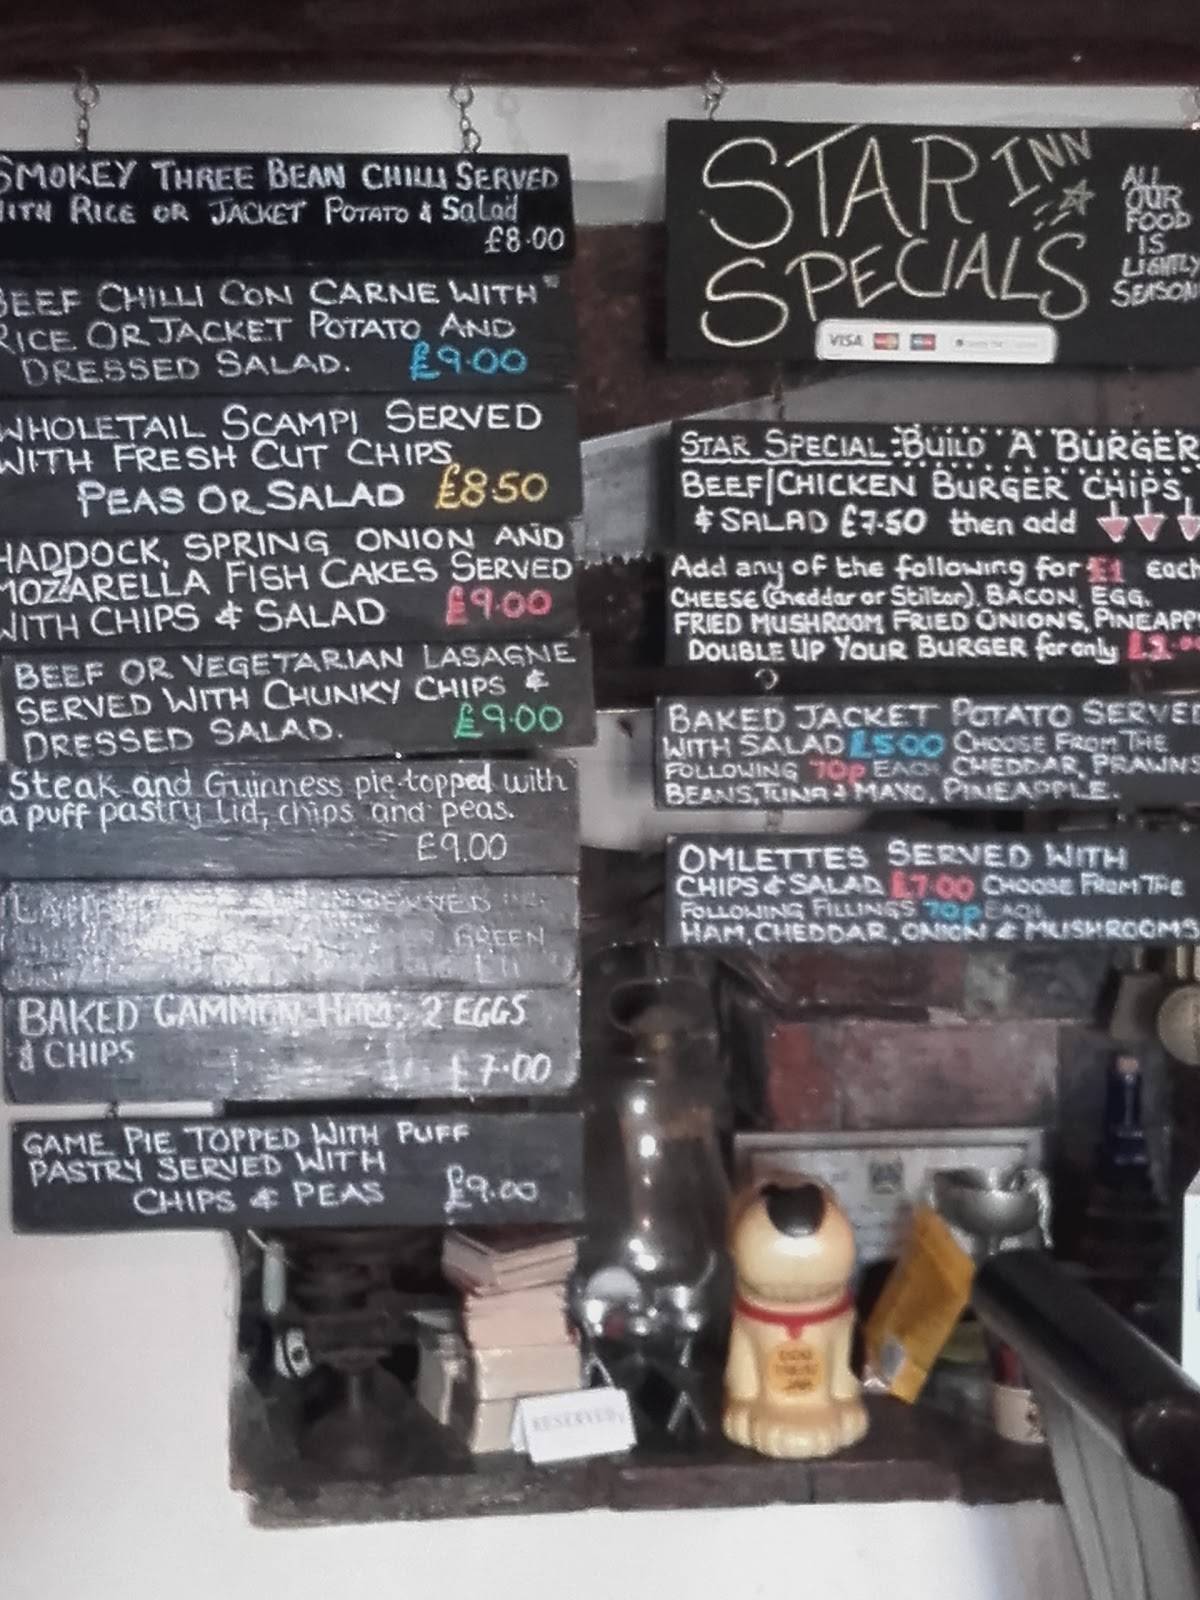 SMOKEY THREE BEAN CHILLI SERVED
WITH RICE OR JACKET POTATO & Salad
£8.00
BEEF CHILLI CON CARNE WITH
RICE OR JACKET POTATO AND
DRESSED SALAD. £9.00
WHOLETAIL SCAMPI SERVED
WITH FRESH CUT CHIPS
PEAS OR SALAD £8.50
HADDOCK, SPRING ONION AND
MOZZARELLA FISH CAKES SERVED
WITH CHIPS & SALAD £9.00
BEEF OR VEGETARIAN LASAGNE
SERVED WITH CHUNKY CHIPS &
DRESSED SALAD. £9.00
Steak and Guinness pie topped with
a puff pastry lid, chips and peas.
£9.00
SERVED
GREEN
BAKED GAMMON HAM, 2 EGGS
& CHIPS
£7.00
GAME PIE TOPPED WITH PUFF
PASTRY SERVED WITH
CHIPS & PEAS £9.00
STAR INN
SPECIALS
ALL
OUR
FOOD
IS
LIGHTLY
SEASON
VISA
STAR SPECIAL: BUILD A BURGER
BEEF/CHICKEN BURGER CHIPS,
& SALAD £7.50 then add
Add any of the following for £1 each
CHEESE (cheddar or Stilton), BACON, EGG,
FRIED MUSHROOM FRIED ONIONS, PINEAPP
DOUBLE UP YOUR BURGER for only
BAKED JACKET POTATO SERVED
WITH SALAD £5.00 CHOOSE FROM THE
FOLLOWING 70p EACH CHEDDAR, PRAWNS
BEANS, TUNA & MAYO, PINEAPPLE.
OMLETTES SERVED WITH
CHIPS & SALAD £7.00 CHOOSE FROM THE
FOLLOWING FILLINGS 70p EACH
HAM, CHEDDAR, ONION & MUSHROOMS
RESERVED